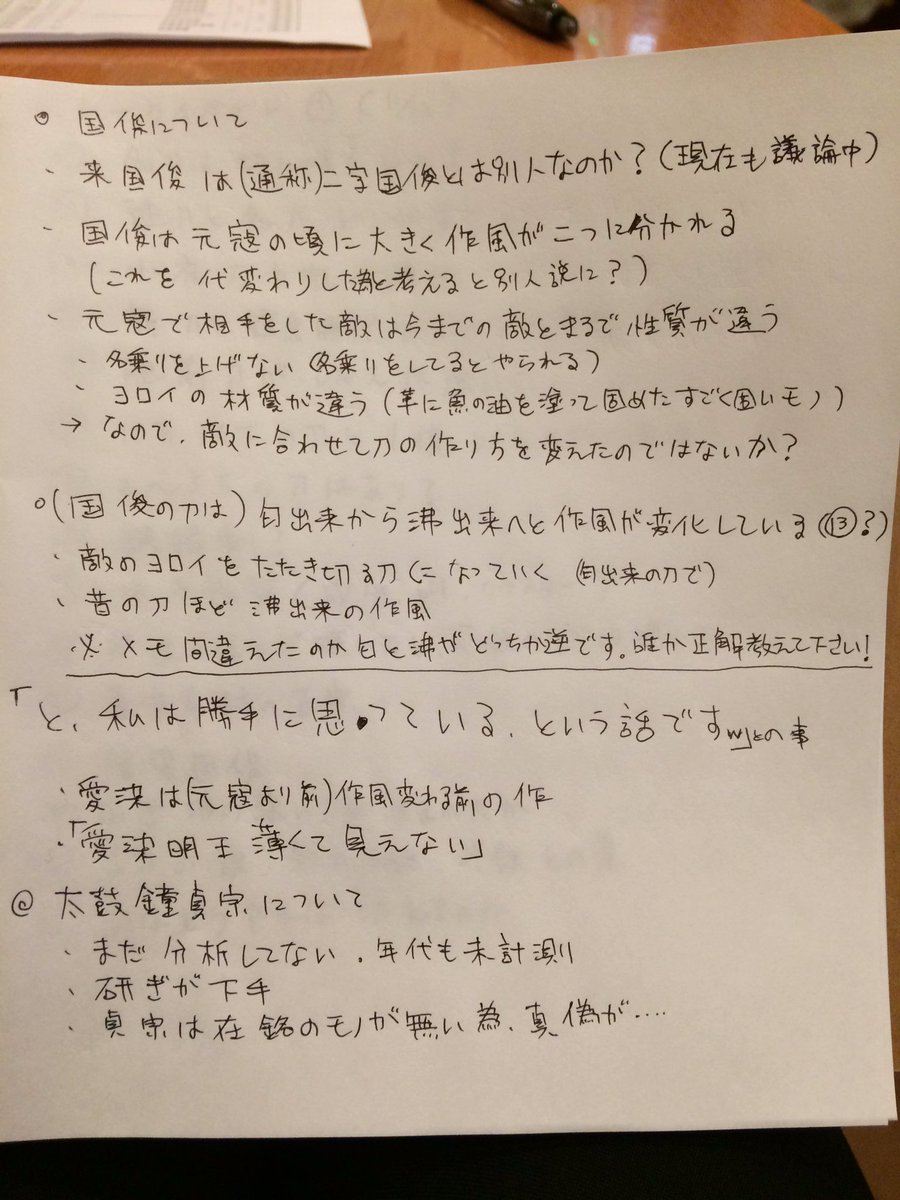 ◎ 国俊について
・来国俊は(通称)二字国俊とは別人なのか?(現在も議論中)
・国俊は元寇の頃に大きく作風が二つに分かれる
(これを代変わりした為と考えると別人説に?)
・元寇で相手をした敵は今までの敵とまるで性質が違う
・名乗りを上げない(名乗りをしてるとやられる)
・ヨロイの材質が違う(革に魚の油を塗って固めたすごく固いモノ)
→ なので、敵に合わせて刀の作り方を変えたのではないか?
○(国俊の刀は)匂出来から沸出来へと作風が変化している(⑬?)
・敵のヨロイをたたき切る刀になっていく (匂出来の刀で)
・昔の刀ほど沸出来の作風
※メモ間違えたのか匂と沸がどっちか逆です。誰か正解教えて下さい!
「と、私は勝手に思っている、という話ですw」との事
・愛染は(元寇より前)作風変わる前の作
・「愛染明王薄くて見えない」
◎ 太鼓鐘貞宗について
・まだ分析してない。年代も未計測
・研ぎが下手
・貞宗は在銘のモノが無い為、真偽が‥‥